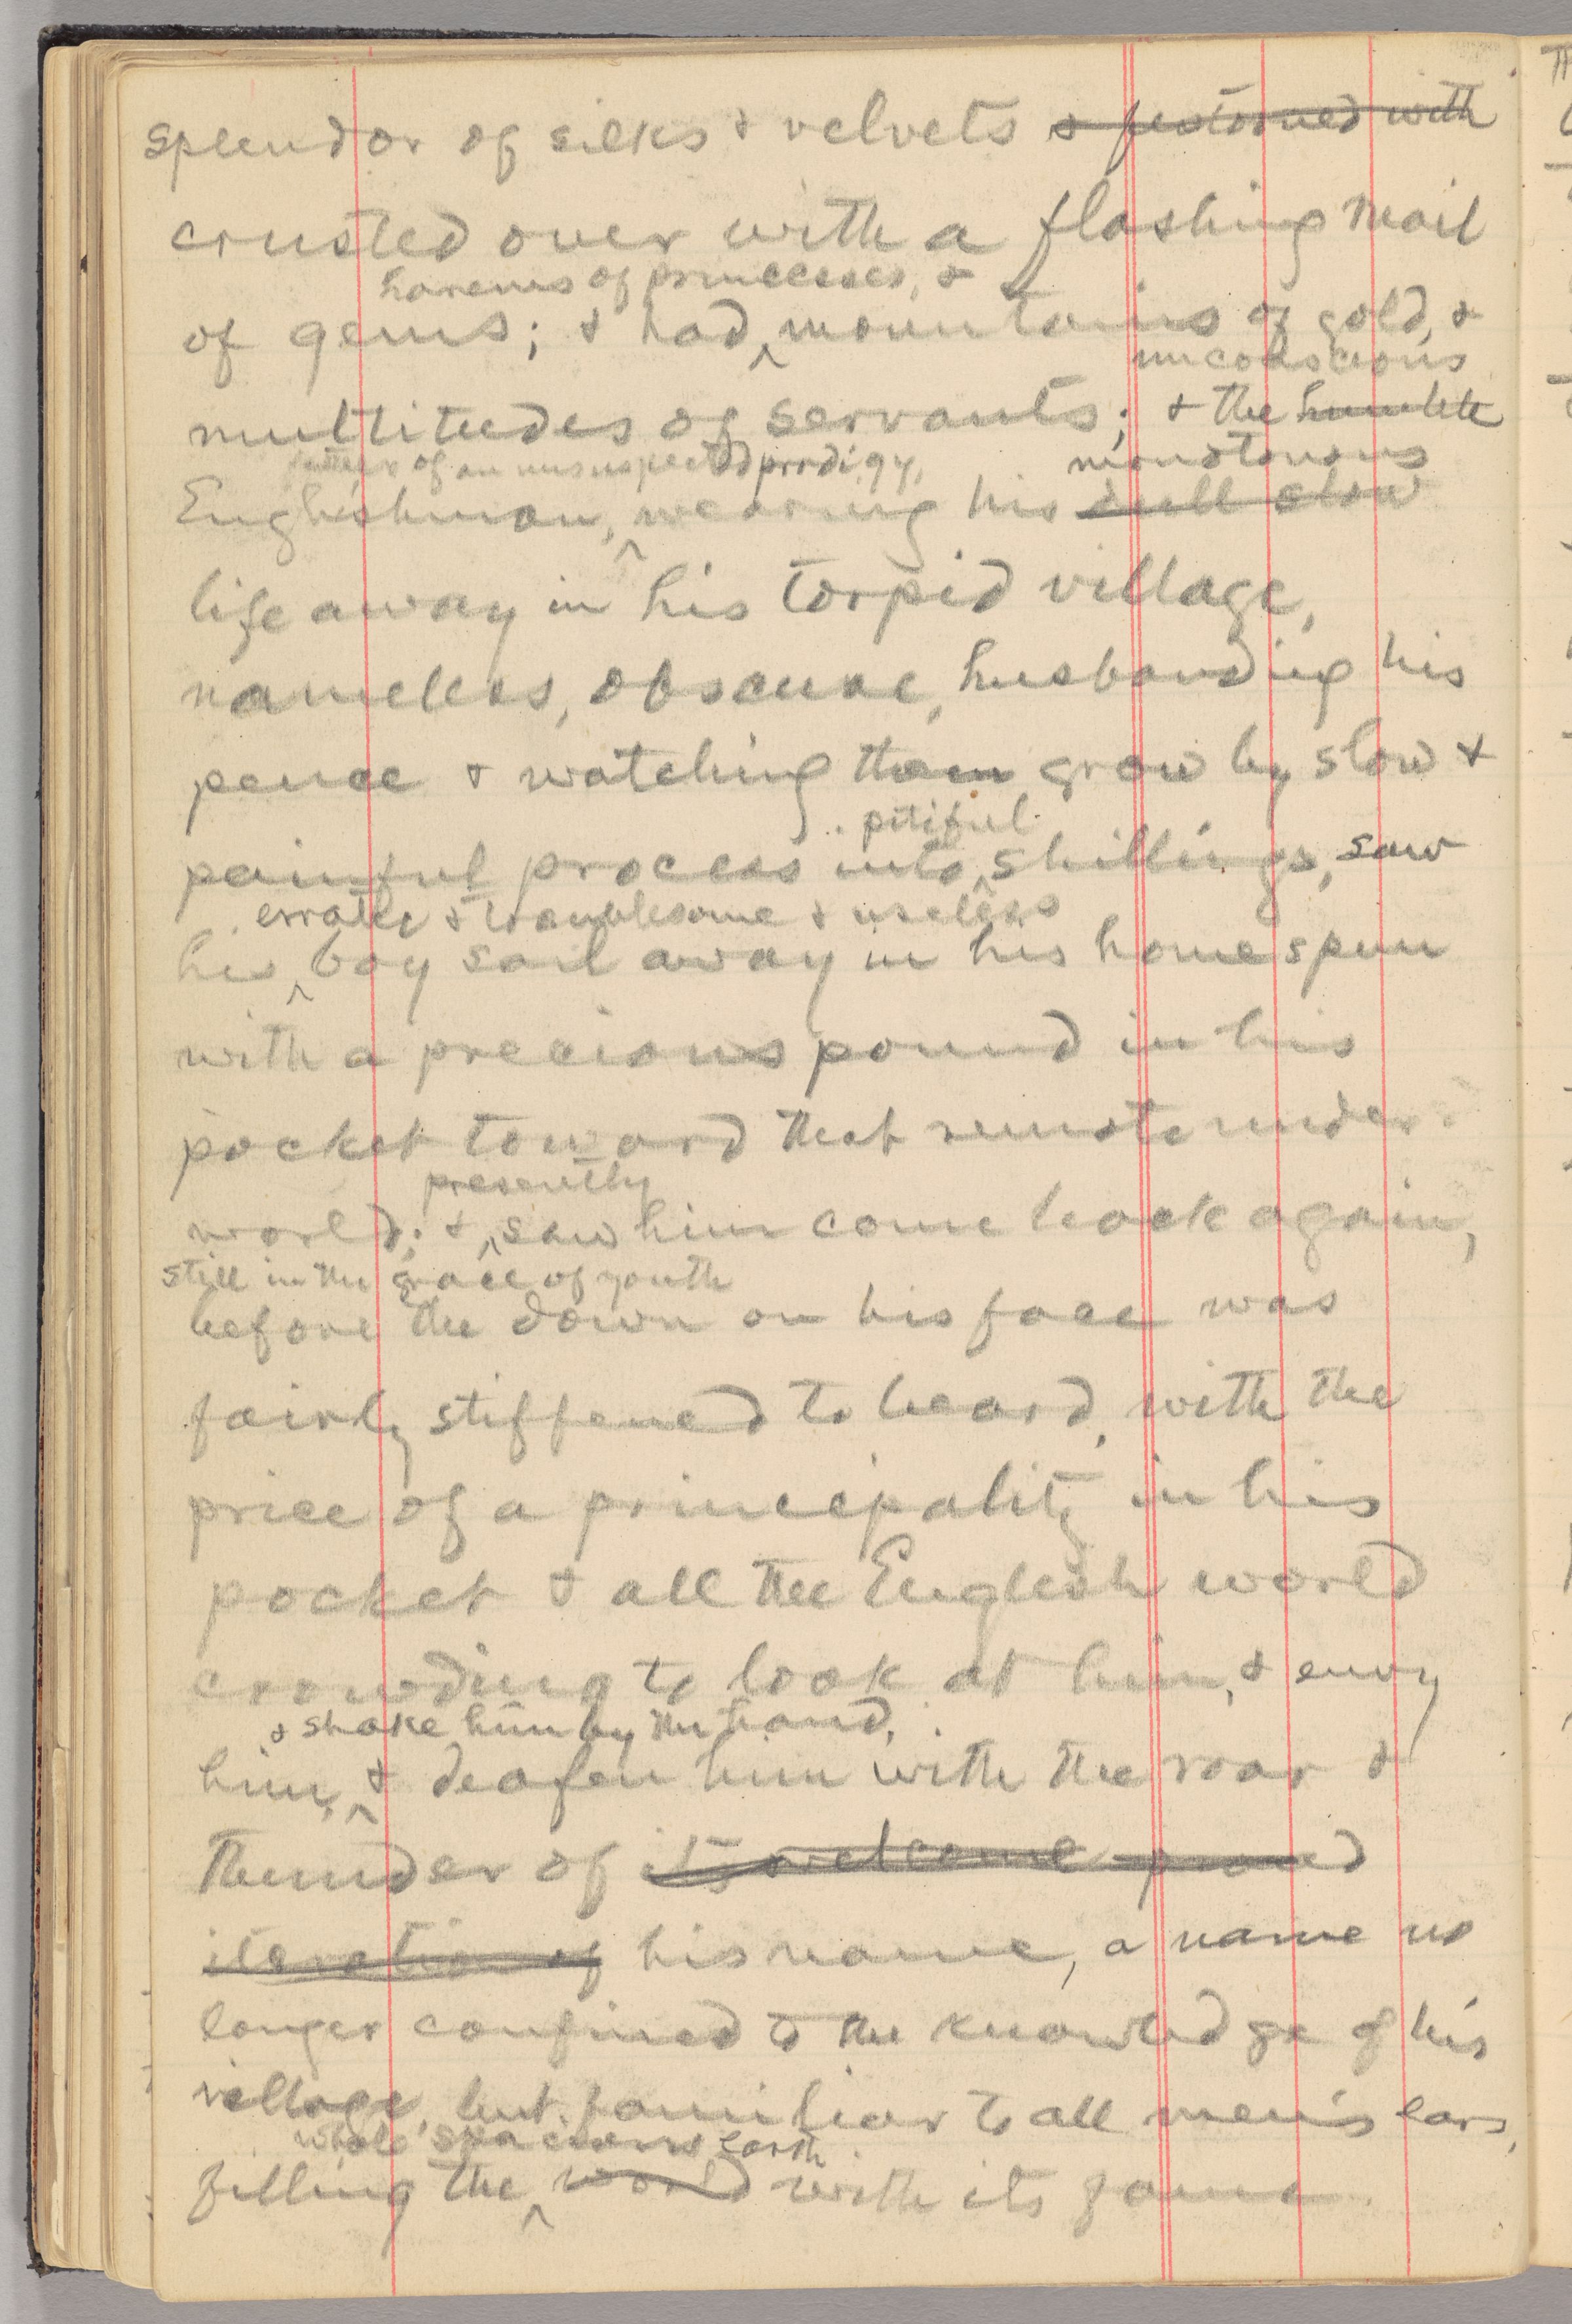 splendor of silks & velvets & festooned with
crusted over with a flashing mail
harems of princesses, &
of gems; & had mountains of gold, &
unconscious
multitudes of servants; & the humble
father of an unsuspected prodigy,
monotonous
Englishman, wearing his dull slow
life away in his torpid village,
nameless, obscure, husbanding his
pence & watching them grow by slow &
pitiful
painful process into shillings, saw
erratic & troublesome & useless
his boy sail away in his homespun
with a precious pound in his
pocket toward that remote under-
presently
world; & saw him come back again,
still in the grace of youth
before the down on his face was
fairly stiffened to beard, with the
price of a principality in his
pocket & all the English world
crowding to look at him, & envy
& shake him by the hand,
him, & deafen him with the roar &
thunder of its welcome proud
iteration of his name, a name no
longer confined to the knowledge of his
village, but familiar to all men's ears,
whole spacious earth
filling the world with its fame.